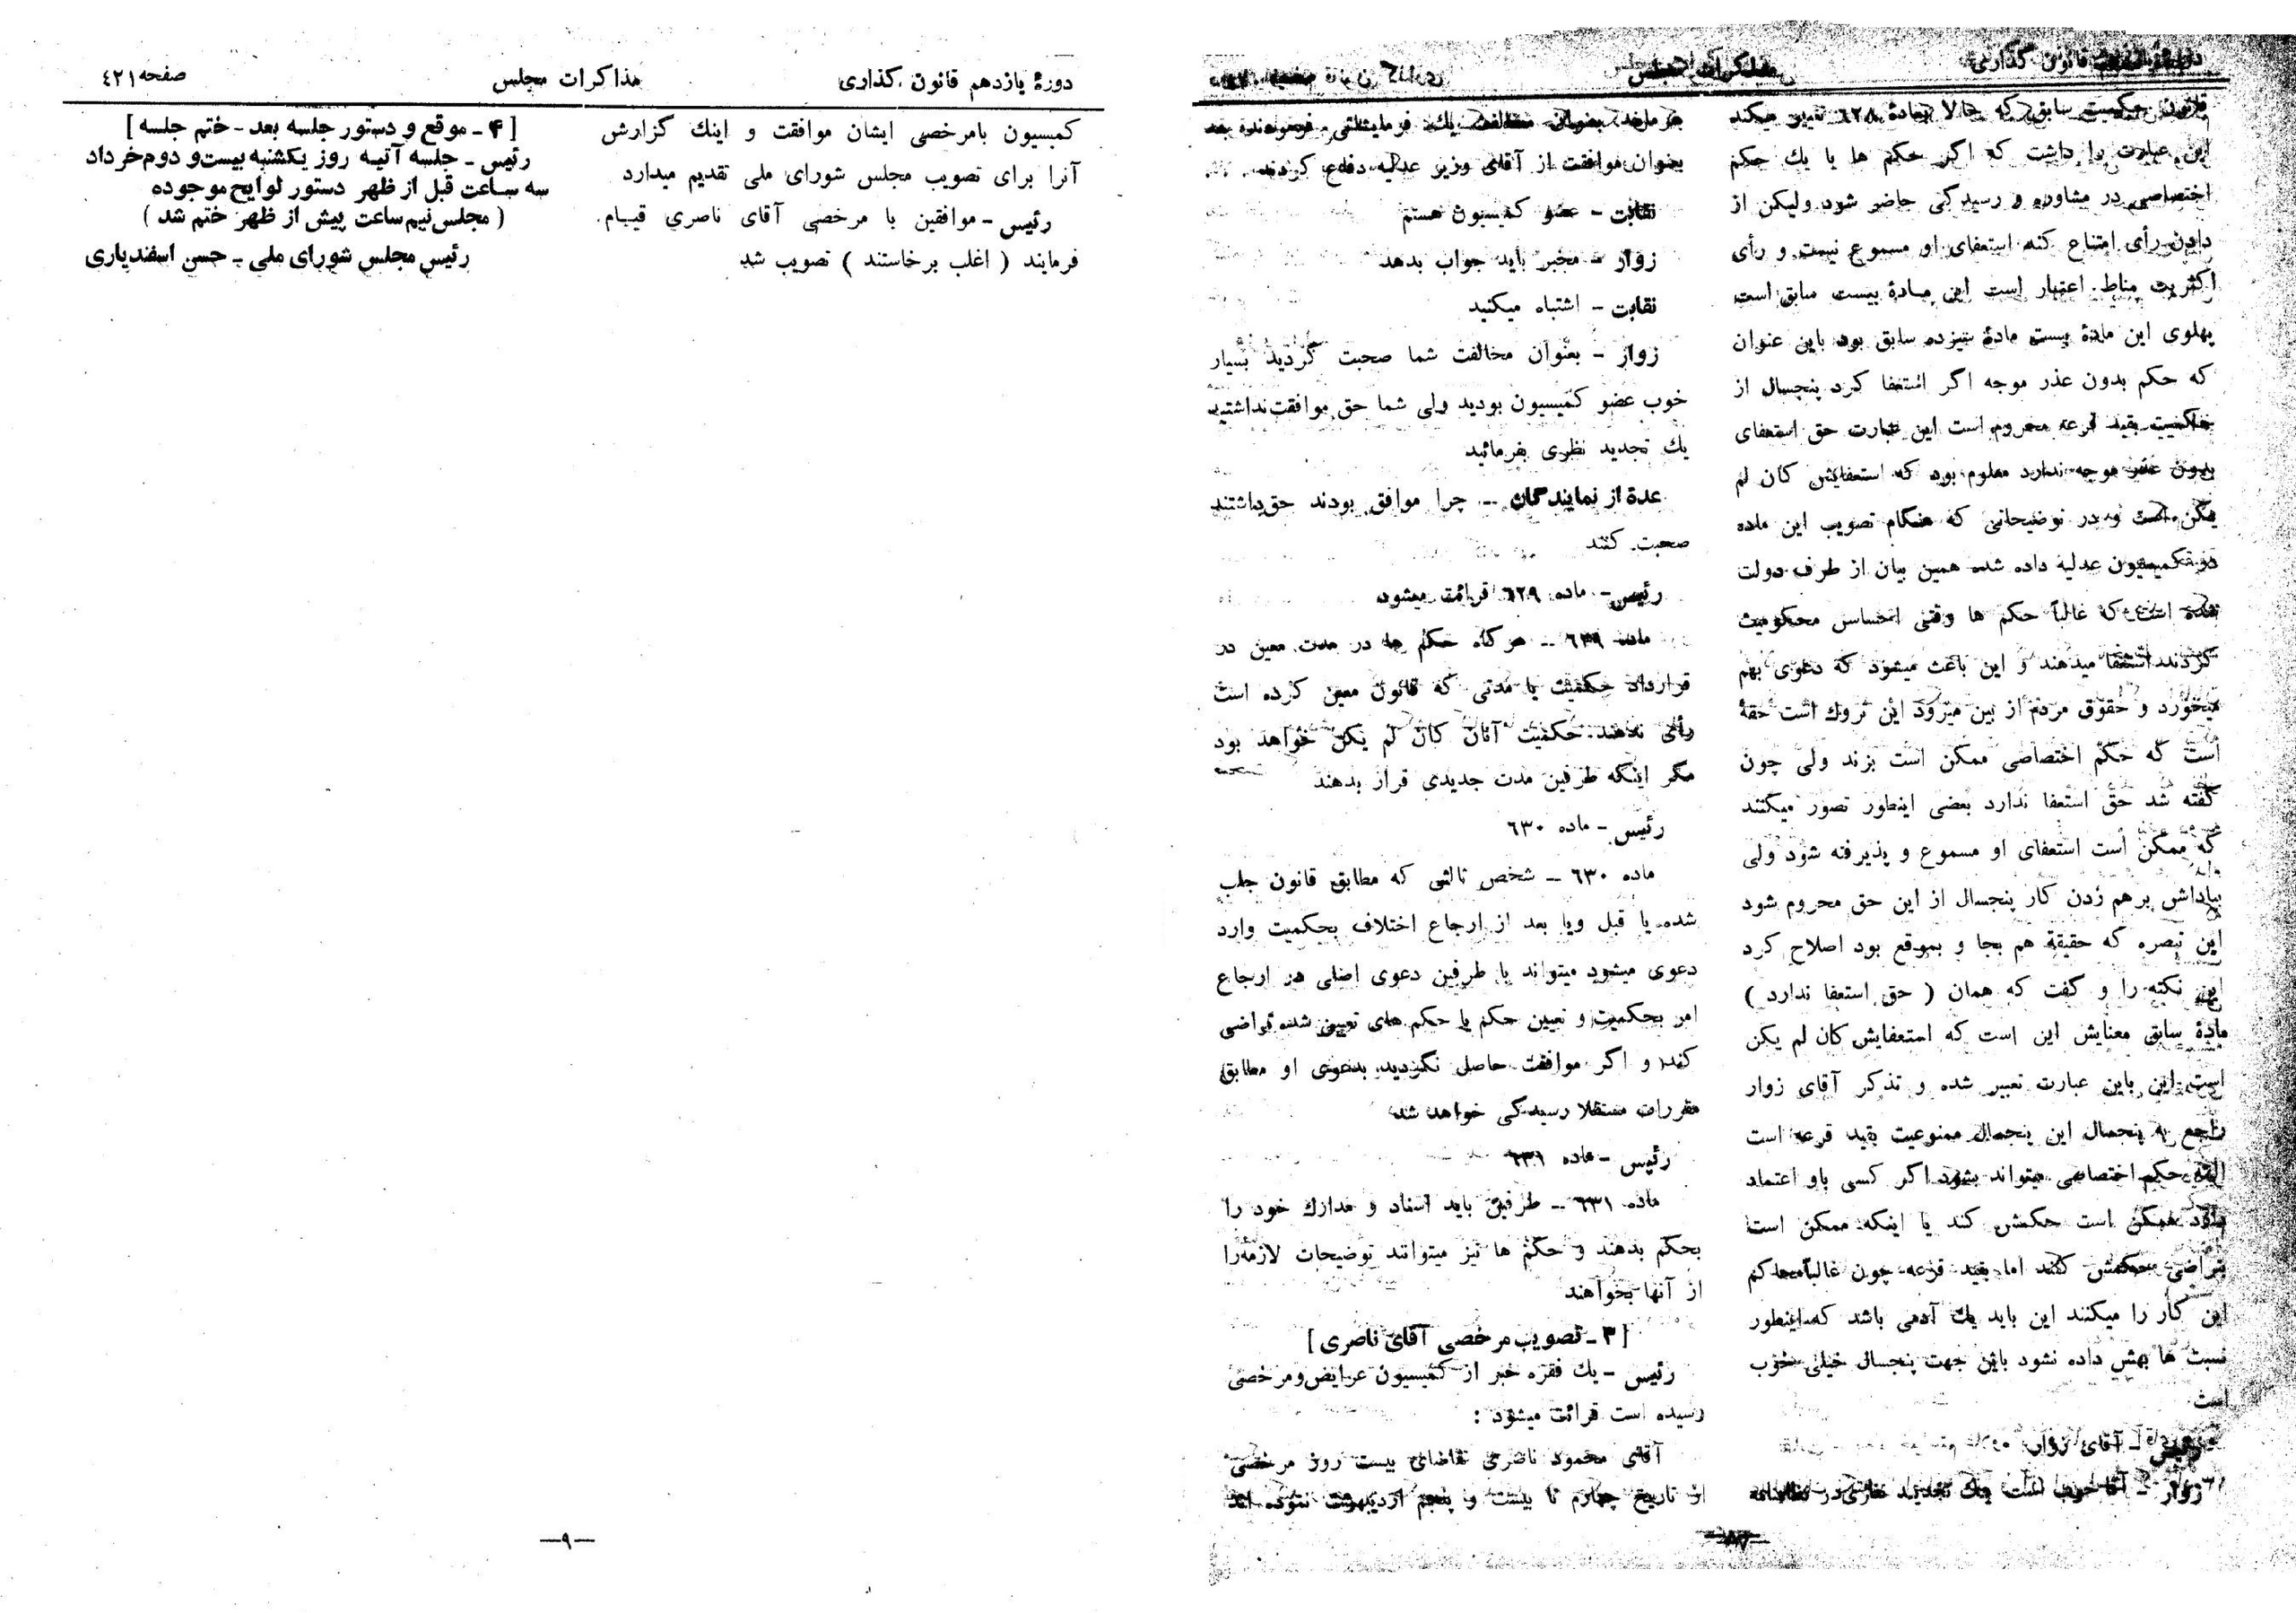 دورهٔ یازدهم قانون گذاری
مذاکرات مجلس
قانون حکمیت سابق که حالا مادهٔ ٦٢٨ تغییر میکند
این عبارت را داشت که اگر حکم ها یا یك حکم
اختصاصی در مشاوره و رسیدگی حاضر شود ولیکن از
دادن رأی امتناع کند استعفای او مسموع نیست و رأی
اکثریت مناط اعتبار است این مادهٔ بیست سابق است
پهلوی این مادهٔ بیست مادهٔ سیزده سابق بود باین عنوان
که حکم بدون عذر موجه اگر استعفا کرد پنجسال از
حاکمیت بقید قرعه محروم است این عبارت حق استعفای
بدون عذر موجه ندارد معلوم بود که استعفایش کان لم
یکن است و در توضیحاتی که هنگام تصویب این ماده
در کمیسیون عدلیه داده شده همین بیان از طرف دولت
شده است که غالباً حکم ها وقتی احساس محکومیت
کردند استعفا میدهند و این باعث میشود که دعوی بهم
میخورد و حقوق مردم از بین میرود این نروك است حقهٔ
است که حکم اختصاصی ممکن است بزند ولی چون
گفته شد حق استعفا ندارد بعضی اینطور تصور میکنند
که ممکن است استعفای او مسموع و پذیرفته شود ولی
بپاداش برهم زدن کار پنجسال از این حق محروم شود
این تبصره که حقیقة هم بجا و بموقع بود اصلاح کرد
این نکته را و گفت که همان ( حق استعفا ندارد )
مادهٔ سابق معنایش این است که استعفایش کان لم یکن
است این باین عبارت تعبیر شده و تذکر آقای زوار
راجع به پنجسال این پنجسال ممنوعیت بقید قرعه است
البته حکم اختصاصی میتواند بشود اگر کسی باو اعتماد
دارد ممکن است حکمش کند یا اینکه ممکن است
بتراضی حکمش کنند اما بقید قرعه چون غالباً محاکم
این کار را میکنند این باید یك آدمی باشد که اینطور
نسبت ها بهش داده نشود باین جهت پنجسال خیلی خوب
است
رئیس - آقای زوار
زوار - آقا خوب است یك تجدید نظری در نظامنامه
بفرمائید بعنوان مخالفت یك فرمایشاتی فرمودند بعد
بعنوان موافقت از آقای وزیر عدلیه دفاع کردند
نقابت - عضو کمیسیون هستم
زوار - مخبر باید جواب بدهد
نقابت - اشتباه میکنید
زوار - بعنوان مخالفت شما صحبت کردید بسیار
خوب عضو کمیسیون بودید ولی شما حق موافقت نداشتید
یك تجدید نظری بفرمائید
عدهٔ از نمایندگان ــ چرا موافق بودند حق داشتند
صحبت کنند
رئیس - ماده ٦٢٩ قرائت میشود
ماده ٦٢٩ ــ هرگاه حکم ها در مدت معین در
قرارداد حکمیت یا مدتی که قانون معین کرده است
رأی ندهند حکمیت آنان کان لم یکن خواهد بود
مگر اینکه طرفین مدت جدیدی قرار بدهند
رئیس - ماده ٦٣٠
ماده ٦٣٠ ــ شخص ثالثی که مطابق قانون جلب
شده یا قبل ویا بعد از ارجاع اختلاف بحکمیت وارد
دعوی میشود میتواند با طرفین دعوی اصلی در ارجاع
امر بحکمیت و تعیین حکم یا حکم های تعیین شده تراضی
کند و اگر موافقت حاصل نگردید بدعوی او مطابق
مقررات مستقلا رسیدگی خواهد شد
رئیس - ماده ٦٣١
ماده ٦٣١ ــ طرفین باید اسناد و مدارك خود را
بحکم بدهند و حکم ها نیز میتوانند توضیحات لازمه را
از آنها بخواهند
[ ۳ ـ تصویب مرخصی آقای ناصری ]
رئیس - یك فقره خبر از کمیسیون عرایض و مرخصی
رسیده است قرائت میشود :
آقای محمود ناصری تقاضای بیست روز مرخصی
از تاریخ چهارم تا بیست و پنجم اردیبهشت نموده اند
دورهٔ یازدهم قانون گذاری
مذاکرات مجلس
صفحه ٤٢١
کمیسیون بامرخصی ایشان موافقت و اینك گزارش
آنرا برای تصویب مجلس شورای ملی تقدیم میدارد
رئیس - موافقین با مرخصی آقای ناصری قیام
فرمایند ( اغلب برخاستند ) تصویب شد
[ ۴ ـ موقع و دستور جلسه بعد - ختم جلسه ]
رئیس - جلسه آتیه روز یکشنبه بیست و دوم خرداد
سه ساعت قبل از ظهر دستور لوایح موجوده
( مجلس نیم ساعت پیش از ظهر ختم شد )
رئیس مجلس شورای ملی - حسن اسفندیاری
—٩—